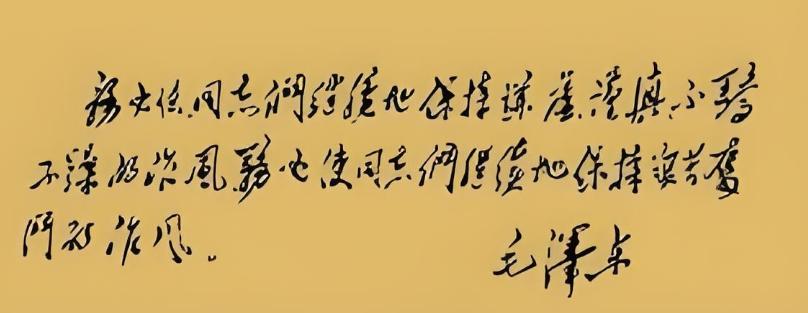 務必使同志們繼續地保持謙虛謹慎不驕
不躁的作風務必使同志們繼續地保持艱苦奮
鬥的作風。
毛澤東